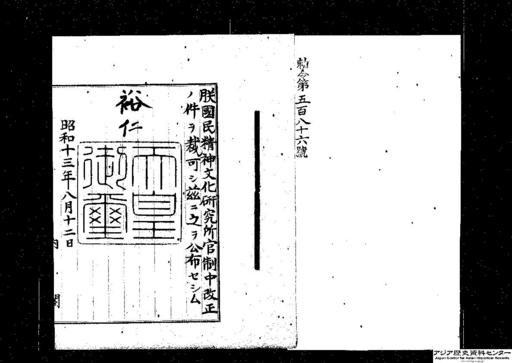 勅令第五百八十六號
朕國民精神文化研究所官制中改正
ノ件ヲ裁可シ茲ニ之ヲ公布セシム
裕仁
天皇御璽
昭和十三年八月十二日
内閣
アジア歴史資料センター
Japan Center for Asian Historical Records